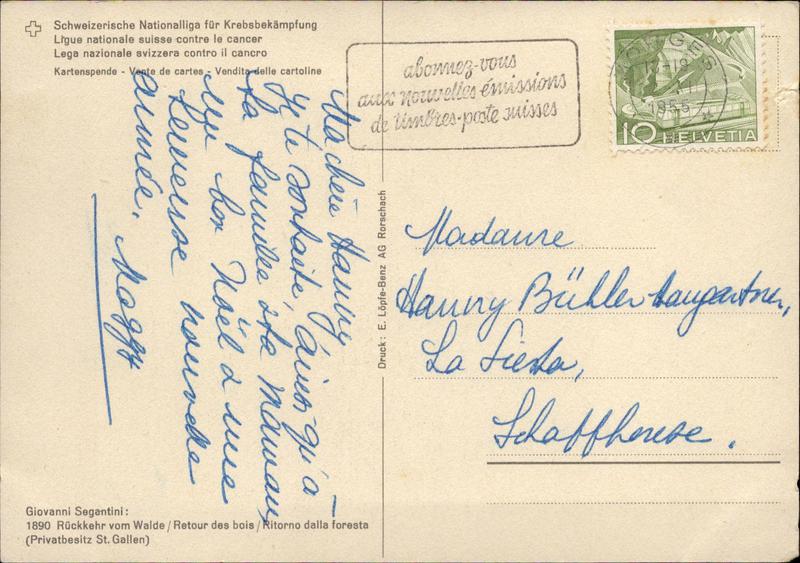 Schweizerische Nationalliga für Krebsbekämpfung
Ligue nationale suisse contre le cancer
Lega nazionale svizzera contro il cancro
Kartenspende - Vente de cartes - Vendita delle cartoline
abonnez-vous
aux nouvelles émissions
de timbres-poste suisses
1955
10 HELVETIA
Ma chère Hanny
Je te souhaite, ainsi qu'à
ta famille & ta Maman,
un bon Noël & une
heureuse nouvelle
année. Maggy
Druck: E. Löpfe-Benz AG Rorschach
Madame
Hanny Bühler Haugartner,
La Siesta,
Schaffhouse.
Giovanni Segantini:
1890 Rückkehr vom Walde / Retour des bois / Ritorno dalla foresta
(Privatbesitz St. Gallen)